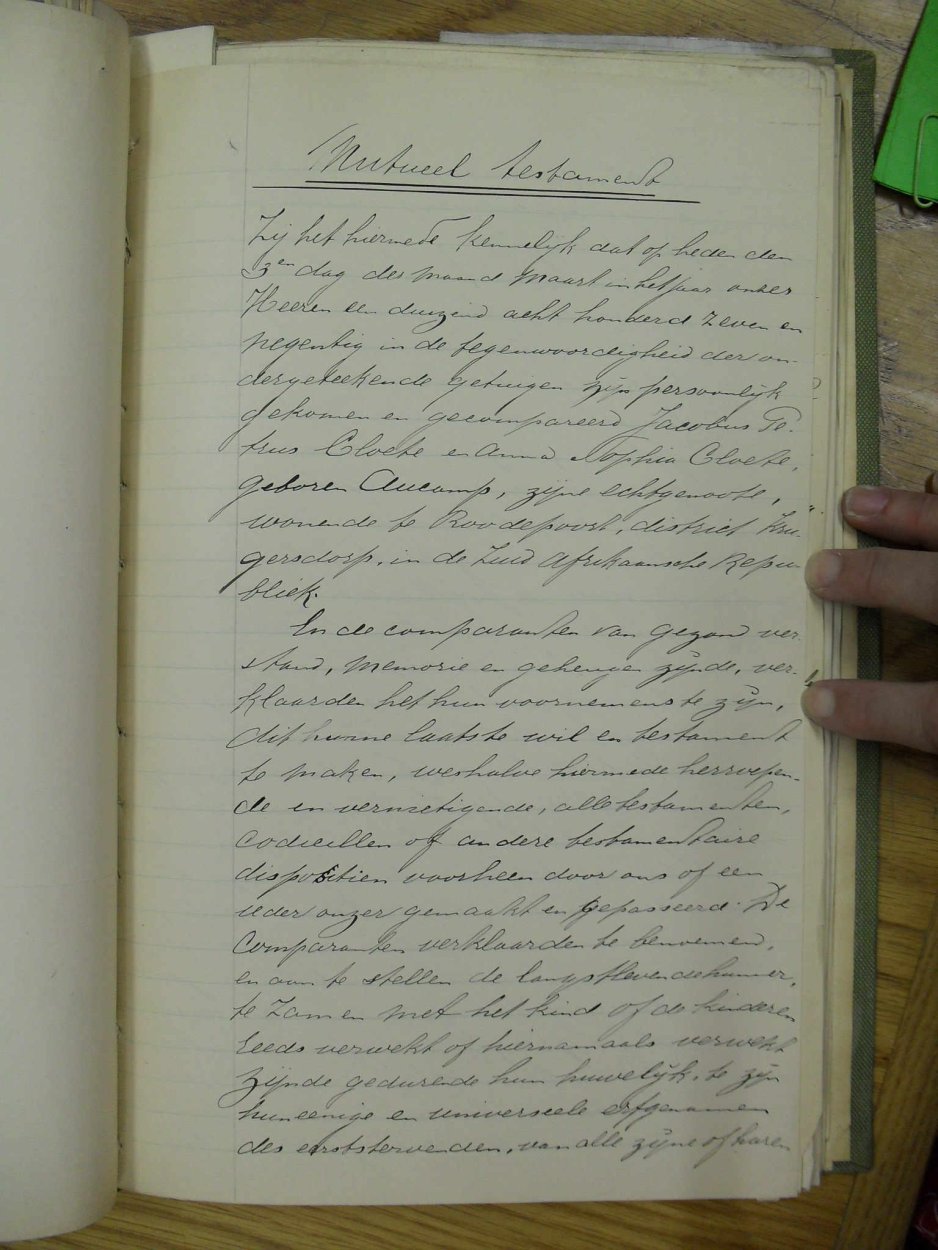 Mutueel testament
Zij het hiermede kennelijk dat op heden den
3en dag der maand Maart in het jaar onzes
Heeren een duizend acht honderd zeven en
negentig in de tegenwoordigheid der on-
dergeteekende getuigen zijn persoonlijk
gekomen en gecompareerd Jacobus Pe-
trus Cloete en Anna Sophia Cloete,
geboren Aucamp, zijne echtgenoote,
wonende te Roodepoort, district Kru-
gersdorp, in de Zuid Afrikaansche Repu
bliek.
En de comparanten van gezond ver-
stand, memorie en geheugen zijnde, ver-
klaarden het hun voornemens te zijn,
dit hunne laatste wil en testament
te maken, weshalve hiermede herroepen-
de en vernietigende, alle testamenten,
codicillen of andere testamentaire
dispositien voorheen door ons of een
ieder onzer gemaakt en gepasseerd. De
Comparanten verklaarden te benoemen,
en aan te stellen de langstlevende hunner,
te zamen met het kind of de kinderen
reeds verwekt of hiernamaals verwekt
zijnde gedurende hun huwelijk, te zijn
hun eenige en universeele erfgenamen
des eerststervenden, van alle zijne of haren